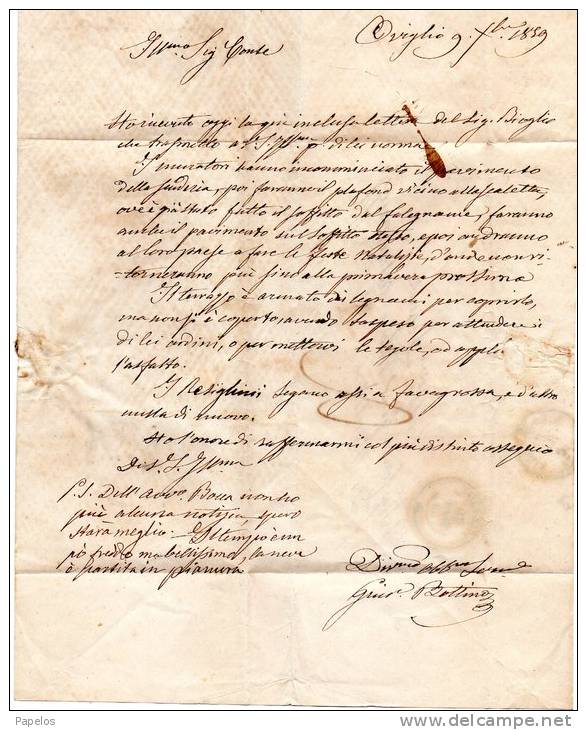 Ill.mo Sig. Conte
Oviglio 9. Xbre. 1859
Ho ricevuto oggi la qui inclusa lettera del Sig. Bioglio
che trasmetto a S. S. Ill.ma p. di lei norma.
I muratori hanno incominciato il pavimento
della scuderia, poi faranno il plafond vicino alla scaletta,
ove è già fatto tutto il soffitto dal falegname, faranno
anche il pavimento sul soffitto stesso, e poi andranno
al loro paese a fare le feste Natalizie, d'onde non ri-
torneranno più fino alla primavera prossima
Il terrazzo è armato di legnami per coprirlo,
ma non si è coperto, avendo sospeso per attendere i
di lei ordini, o per mettervi le tegole, od
l'asfalto.
I segano assi a
di nuovo.
Ho l'onore di raffermarmi col più distinto ossequio
Di S. S. Ill.ma
P.S. Dell' Avvo. Bocca non ho
più alcuna notizia, spero
starà meglio. Il tempo è un
pò freddo ma bellissimo, la neve
è partita in pianura
Div.mo Obb.mo Serv.e
Bottino
Papelos
www.delcampe.net